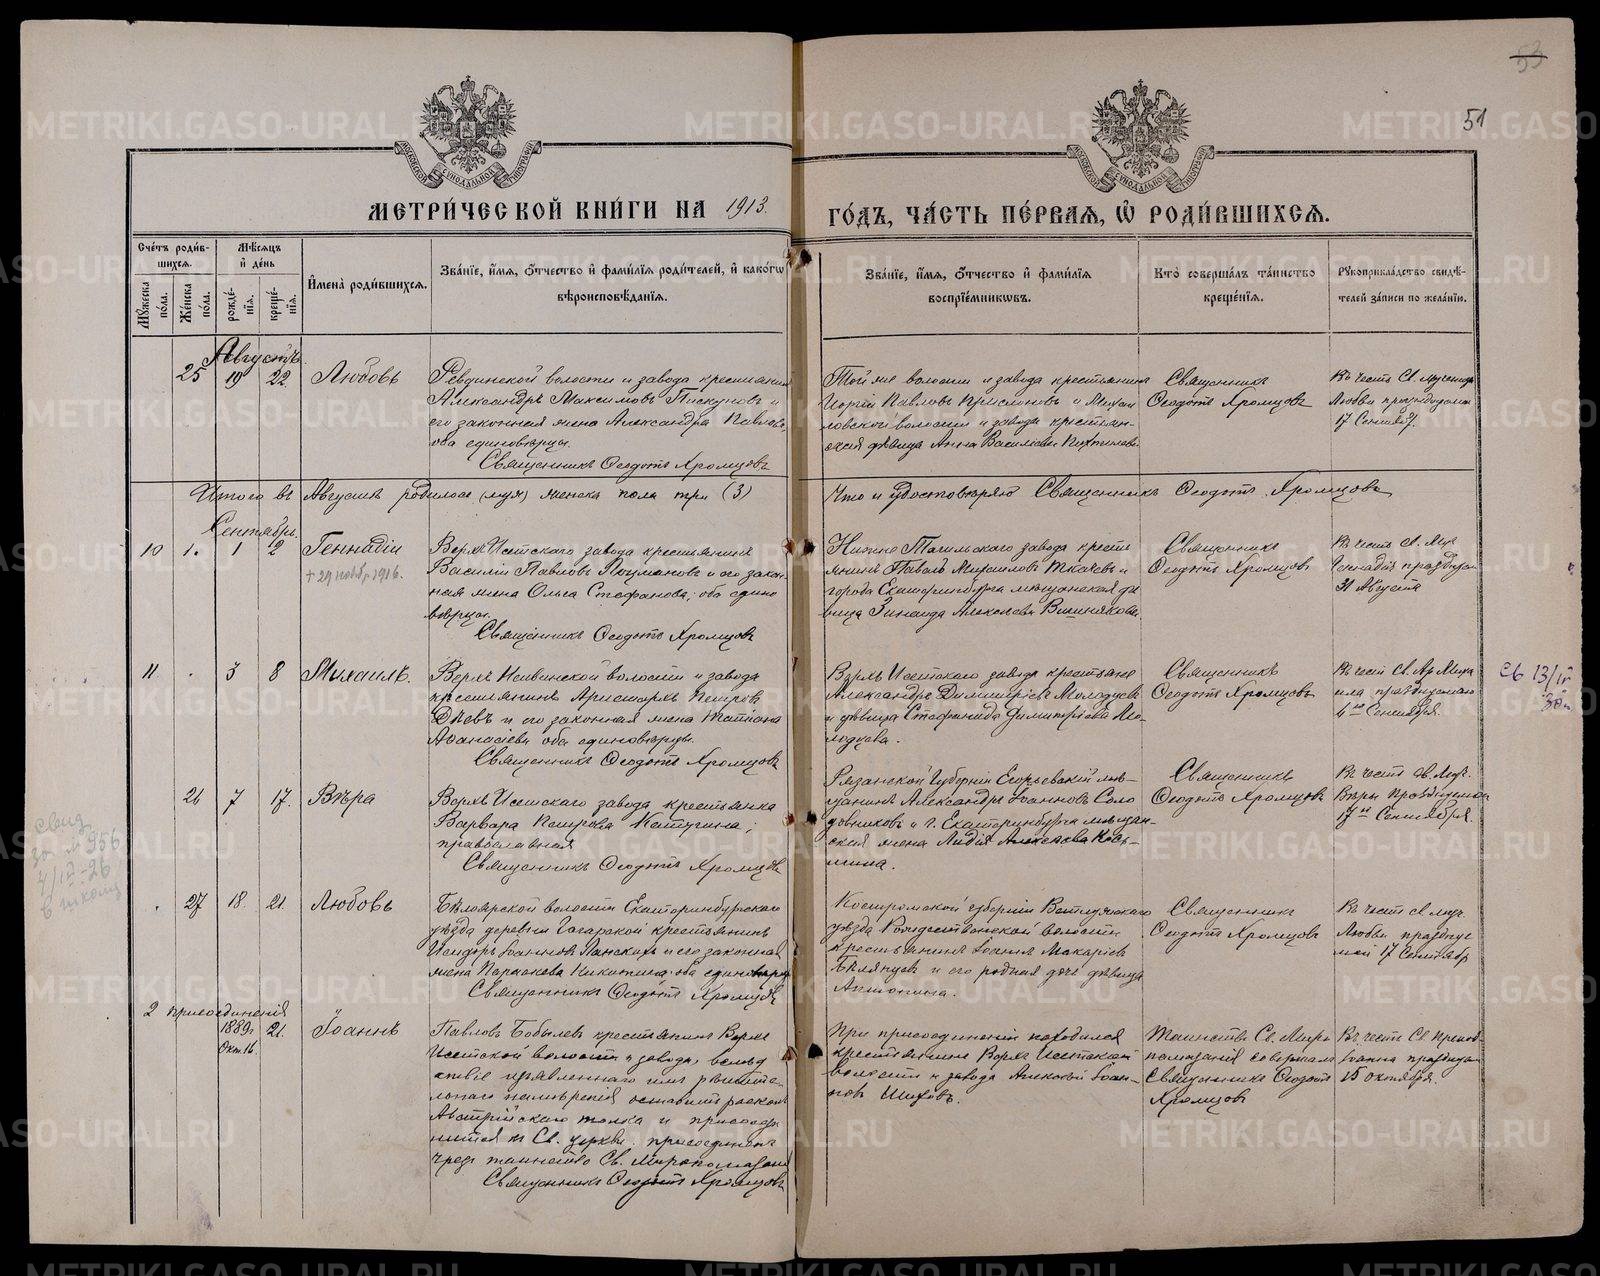 53
51
МЕТРИ́ЧЕСКОЙ КНИ́ГИ НА 1913.
ГО́ДЪ, ЧА́СТЬ ПЕ́РВАѦ, Ѡ҆ РОДИ́ВШИХСѦ.
Сче́тъ роди́в-
шихсѧ.
Мѣ́сѧцъ
и҆ де́нь
Мꙋ́жеска по́ла.
Же́нска по́ла.
рожде́-
нїѧ.
креще́-
нїѧ.
И҆мена̀ роди́вшихсѧ.
Зва́нїе, и҆́мѧ, ѻ҆́тчество и҆ фами́лїѧ роди́телей, и҆ како́гѡ
вѣроисповѣ́данїѧ.
Зва́нїе, и҆́мѧ, ѻ҆́тчество и҆ фами́лїѧ
воспрїе́мникѡвъ.
Кто̀ соверша́лъ та́инство
креще́нїѧ.
Рꙋкоприкла́дство свидѣ́-
телей за́писи по жела́нїю.
Августъ.
25 19 22 Любовь
Ревдинской волости и завода крестьянинъ
Александръ Максимовъ Пискуновъ и
его законная жена Александра Павлова,
оба единоверцы.
Священникъ Ѳеодотъ Хромцовъ
Той же волости и завода крестьянинъ
Павловъ и Михай
ловской волости и завода крестьян-
ская дѣвица Анна Василіева
Священникъ
Ѳеодотъ Хромцовъ
Въ честь Св. мученицы
Любви празднуемой
17 Сентября.
Итого въ Августѣ родилось (муж) женска пола три (3)
Что и удостовѣряю Священникъ Ѳеодотъ Хромцовъ
Сентябрь.
10 1. 1 2 Геннадій
+ 29 нояб. 1916.
Верхъ Исетскаго завода крестьянинъ
Василій Павловъ и его закон-
ная жена Ольга Стефанова, оба едино
верцы.
Священникъ Ѳеодотъ Хромцовъ
Нижне Тагильскаго завода кресть
янинъ Павелъ Михаиловъ Ткачевъ и
города Екатеринбурга мѣщанская дѣ
вица Зинаида Алексѣева Вишнякова.
Священникъ
Ѳеодотъ Хромцовъ
Въ честь Св. Муч.
Геннадія празднуем
31 Августа
11. . 3 8 Михаилъ.
Верхъ Нейвинской волости и завода
крестьянинъ Аристархъ Петровъ
и его законная жена Татіана
Аѳанасіева оба единоверцы.
Священникъ Ѳеодотъ Хромцовъ
Верхъ Исетскаго завода крестьяне
Александръ Димитріевъ Молодцевъ
и дѣвица Стефанида Димитріева Мо-
лодцева.
Священникъ
Ѳеодотъ Хромцовъ
Въ честь Св. Ар. Миха
ила празднуемаго
6го Сентября.
26 7 17. Вѣра
Верхъ Исетскаго завода крестьянка
Варвара Петрова Кетугина;
православная
Священникъ Ѳеодотъ Хромцовъ
Рязанской Губерніи Егорьевскій мѣ-
щанинъ Александръ Іоанновъ Соло
довниковъ и г. Екатеринбурга мѣщан-
ская жена Лидія Алексѣева Козь-
мина.
Священникъ
Ѳеодотъ Хромцовъ
Въ честь Св. Муч.
Вѣры Празднуемой
17го Сентября.
свид
за № 956
в школу
. 27 18. 21. Любовь
Бѣлоярской волости Екатеринбургскаго
уѣзда деревни Гагарской крестьянинъ
Исидоръ Іоанновъ Ланскихъ и его законная
жена Параскева Никитина оба единоверцы
Священникъ Ѳеодотъ Хромцовъ
Костромской губерніи Ветлужскаго
уѣзда Рождественской волости
крестьянинъ Іоаннъ Макаріевъ
Бѣлянцевъ и его родная дочь дѣвица
Антонина.
Священникъ
Ѳеодотъ Хромцовъ
Въ честь Св. муч.
Любви празднуе
мой 17 Сентября
2 присоединенія
1889г. 21. Іоаннъ
Окт. 16.
Павловъ Бобылевъ крестьянинъ Верхъ
Исетской волости и завода, вслѣд
ствіе изъявленнаго имъ рѣшите-
льнаго намѣренія оставить расколъ
Австрійскаго толка и присоеди
ниться къ Св. церкви присоединенъ
чрезъ таинство Св. Миропомазанія
Священникъ Ѳеодотъ Хромцовъ
При присоединеніи находился
крестьянинъ Верхъ Исетской
волости и завода Алексѣй Іоан-
новъ Шиховъ.
Таинство Св. Миро
помазанія совершалъ
Священникъ Ѳеодотъ
Хромцовъ
Въ честь Св. препод.
Іоанна празднуем
15 октября.
METRIKI.GASO-URAL.RU